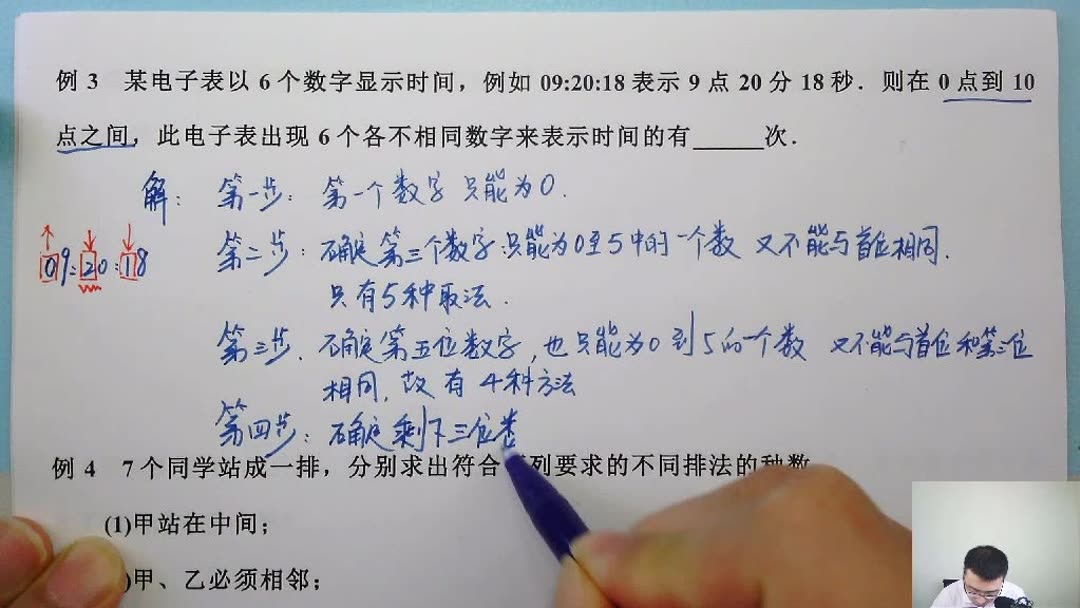 例 3 某电子表以 6 个数字显示时间，例如 09:20:18 表示 9 点 20 分 18 秒．则在 0 点到 10
点之间，此电子表出现 6 个各不相同数字来表示时间的有______次．
解： 第一步： 第一个数字 只能为0．
09:20:18
第二步：确定第三个数字 只能为0至5中的一个数 又不能与首位相同．
只有5种取法．
第三步．确定第五位数字，也只能为0到5的一个数 又不能与首位和第三位
相同，故有 4种方法
第四步：确定剩下三位
例 4 7 个同学站成一排，分别求出符合 列要求的不同排法的种数
(1)甲站在中间；
)甲、乙必须相邻；